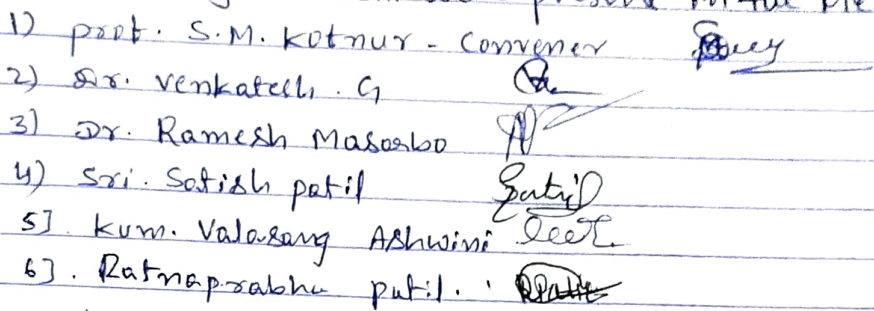 1) prof. S.M. Kotnur - Convener
2) Dr. Venkatesh. G
3) Dr. Ramesh Masarbo
4) Sri. Satish patil Patil
5]. Kum. Valasang Ashwini
6]. Ratnaprabha patil. RPatil